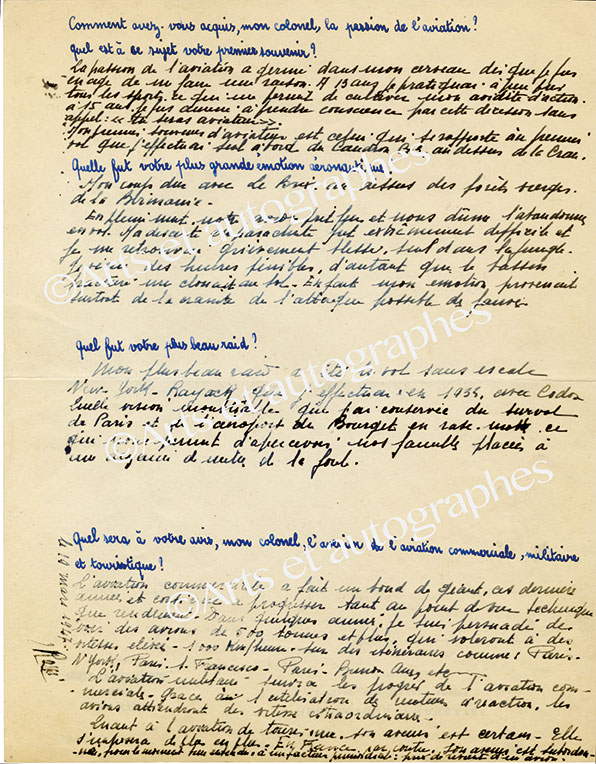 Comment avez-vous acquis, mon colonel, la passion de l'aviation?
Quel est à ce sujet votre premier souvenir?
La passion de l'aviation a germé dans mon cerveau dès que je fus
en âge de me faire une raison. A 13 ans je pratiquais à peu près
tous les sports, ce qui me permit de cultiver mon avidité d'action
à 15 ans je fus amené à prendre conscience par cette décision sans
appel: "tu seras aviateur".
Mon premier souvenir d'aviateur est celui qui se rapporte au premier
vol que j'effectuai seul à bord du Caudron G3 au dessus de la Crau.
Quelle fut votre plus grande émotion aéronautique?
Mon coup dur avec Le Brix, au dessus des forêts vierges
de la Birmanie.
En pleine nuit, notre avion prit feu et nous dûmes l'abandonner
en vol. Ma descente en parachute fut extrêmement difficile et
je me retrouvai grièvement blessé, seul dans la jungle.
les heures pénibles, d'autant que le bassin
fracturé me clouait au sol. En fait mon émotion provenait
surtout de la crainte de l'attaque possible des fauves.
Quel fut votre plus beau raid?
Mon plus beau raid a été le vol sans escale
New-York - Rayack que j'effectuai en 1933, avec Codos
Quelle vision inoubliable que j'ai conservée du survol
de Paris et de l'aéroport du Bourget en rase-mott ce
qui nous permit d'apercevoir nos familles placées à
une dizaine de mètres de la foule.
Quel sera à votre avis, mon colonel, l'avenir de l'aviation commerciale, militaire
et touristique?
L'aviation commerciale a fait un bond de géant, ces dernières
années et continue à progresser tant au point de vue technique
que rendement. Dans quelques années, je suis persuadé de
voir des avions de 500 tonnes et plus, qui voleront à des
vitesses élevées - 1000 km/heure - sur des itinéraires comme: Paris-
N.York, Paris-S. Francisco - Paris-Buenos Ayres, etc
L'aviation militaire suivra les progrès de l'aviation com-
merciale. Grâce à l'utilisation de moteurs à réaction, les
avions atteindront des vitesses extraordinaires.
Quant à l'aviation de tourisme, son avenir est certain. Elle
s'imposera de plus en plus. En France, par contre, son avenir est subordon-
né, pour le moment à un facteur primordial: prix de revient d'un avion.
le 10 mars
Rossi
©Arts et autographes
©Arts et autographes
©Arts et autographes
©Arts et autographes